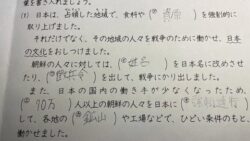 葉を書き入れましょう。
(7) 日本は、占領した地域で、食料や(① 資源 )を強制的に
取り上げました。
それだけでなく、その地域の人々を戦争のために働かせ、日本
の文化をおしつけました。
朝鮮の人々に対しては、(② 姓名 )を日本名に改めさせ
たり、(③ 徴兵令 )を出して、戦争にかり出しました。
また、日本の国内の働き手が少なくなったため、
(④ 70万 )人以上の朝鮮の人々を日本に(⑤ 強制連行 )
して、各地の(⑥ 鉱山 )や工場などで、ひどい条件のもと、
働かせました。